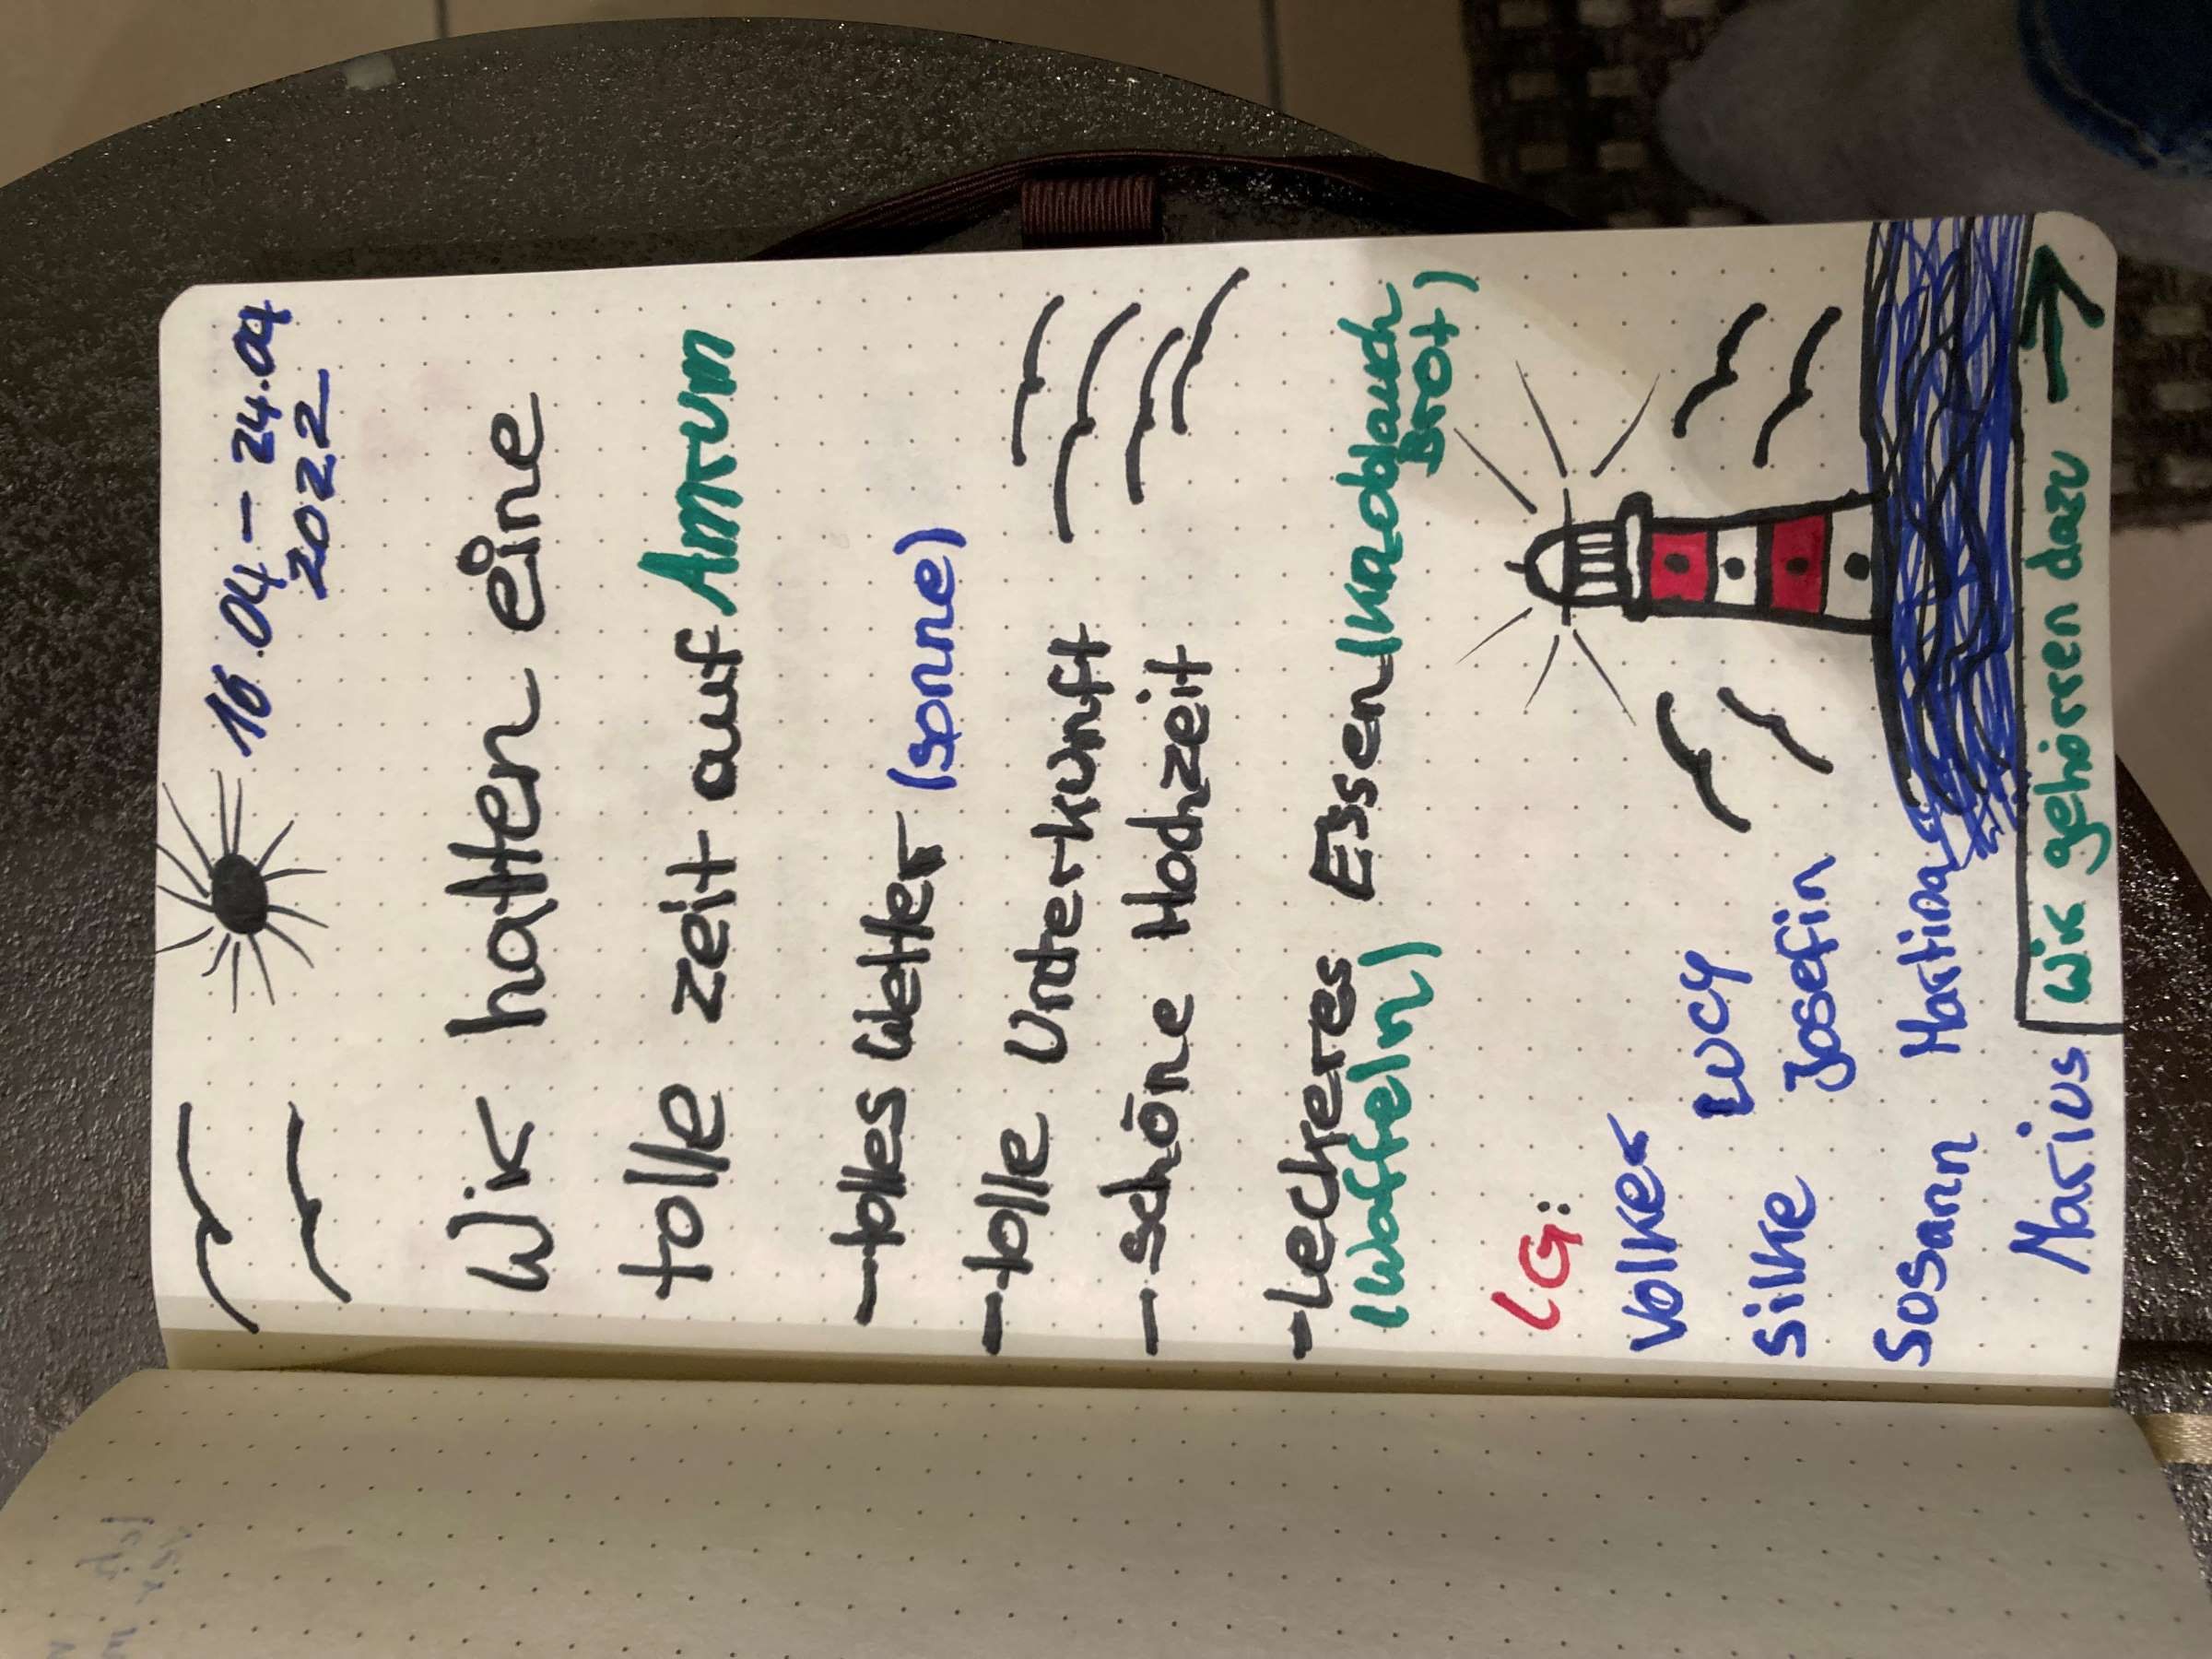 16.04 - 24.04
2022
Wir hatten eine
tolle zeit auf Amrum
- tolles Wetter (sonne)
- tolle Unterkunft
- schöne Hochzeit
- Leckeres Essen (Knoblauch
Brot)
(Waffeln)
LG:
Volker Lucy
Silke Josefin
Susann Martina
Marius
Wir gehörren dazu →